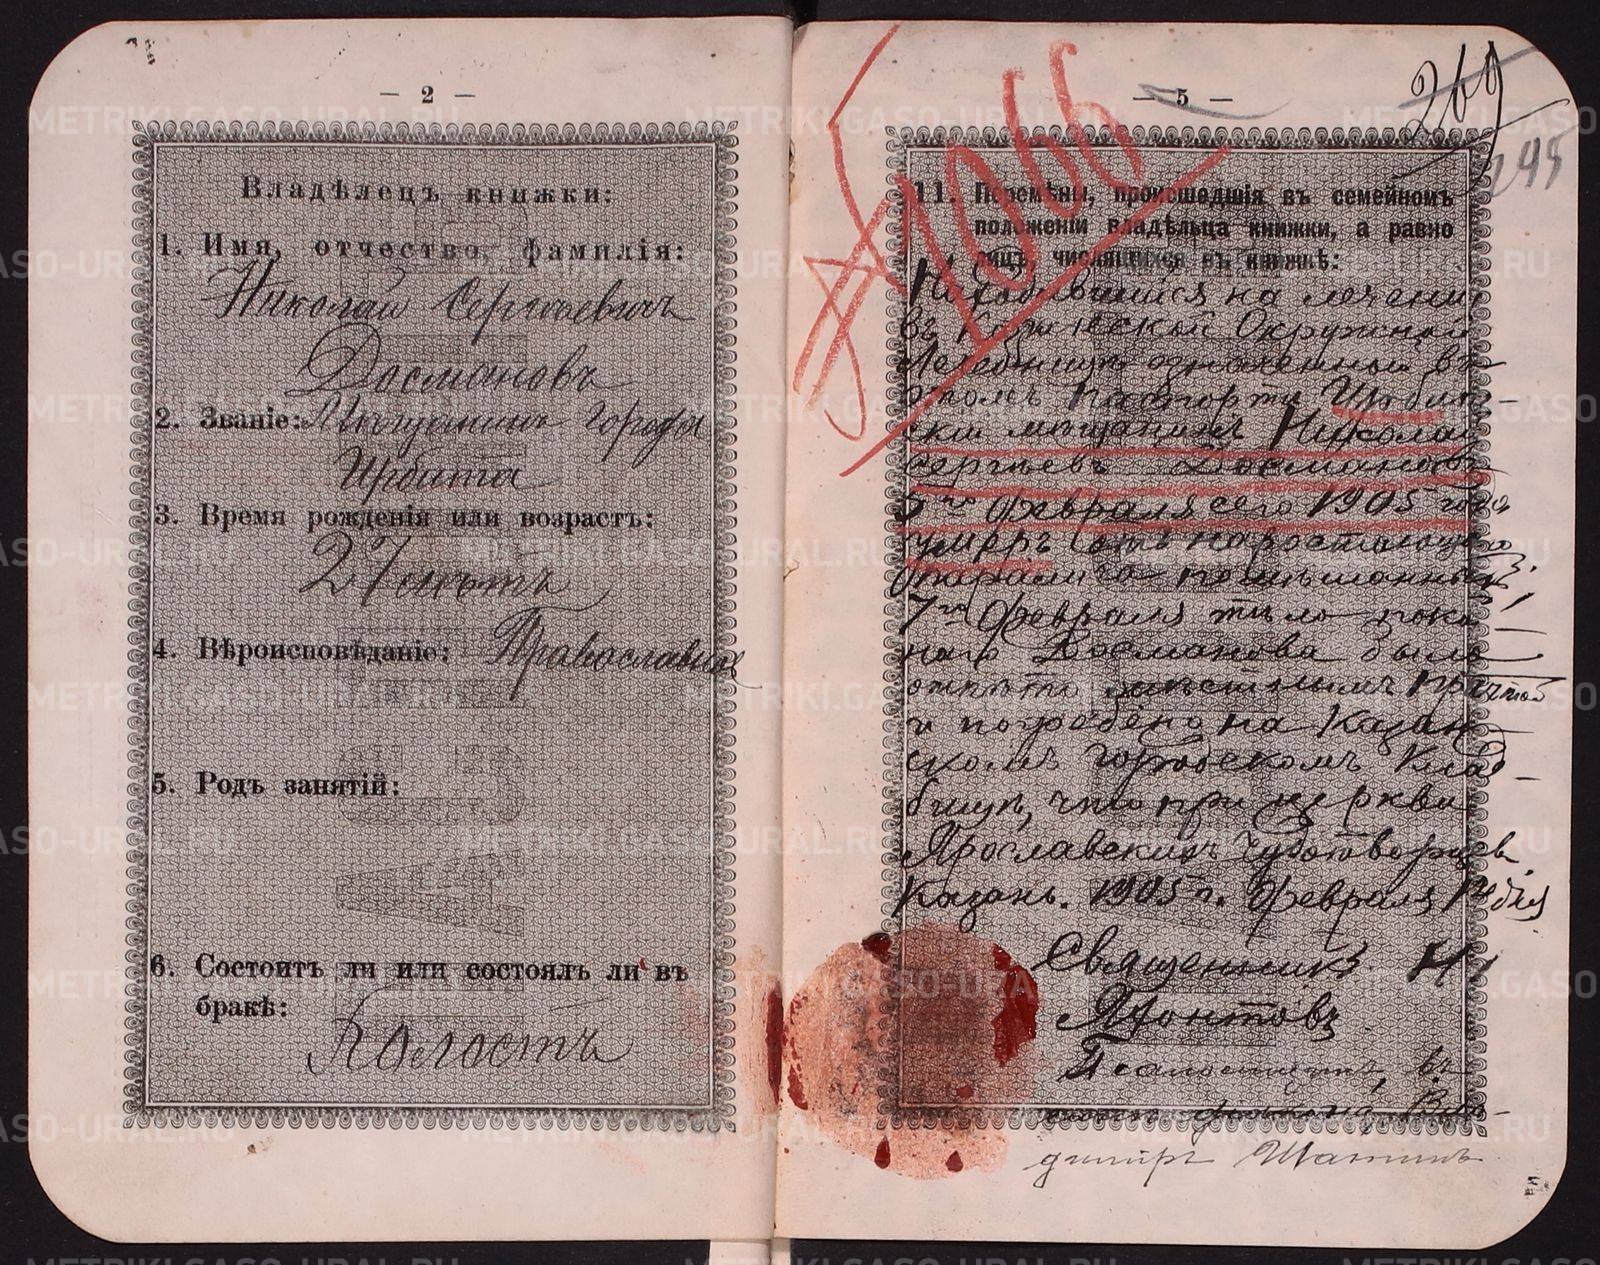 — 2 —
Владѣлецъ книжки:
1. Имя, отчество, фамилія:
Николай Сергѣевичъ
Досмановъ
2. Званіе: Мѣщанинъ города
Ирбита
3. Время рожденія или возрастъ:
27 лѣтъ
4. Вѣроисповѣданіе: Православное
5. Родъ занятій:
6. Состоитъ ли или состоялъ ли въ
бракѣ:
Холостъ
— 5 —
269
295
№1066
11. Перемѣны, происшедшія въ семейномъ
положеніи владѣльца книжки, а равно
лицъ, числящихся въ книжкѣ:
Находившійся на леченіи
въ Казанской Окружной
Лечебницѣ означенный въ
этомъ паспортѣ Ирбит-
скій мѣщанинъ Николай
Сергѣевъ Досмановъ
5го февраля сего 1905 года
умеръ отъ наростающаго
паралича помѣшанныхъ.
7го февраля тѣло покой-
наго Досманова было
отпѣто мѣстнымъ причтомъ
и погребено на Казан-
скомъ городскомъ клад-
бищѣ, что при церкви
Ярославскихъ Чудотворцевъ
Казань. 1905 г. февраля дня
Священникъ Н.
Псаломщикъ, въ
санѣ діакона, Вла-
диміръ
METRIKI.GASO-URAL.RU